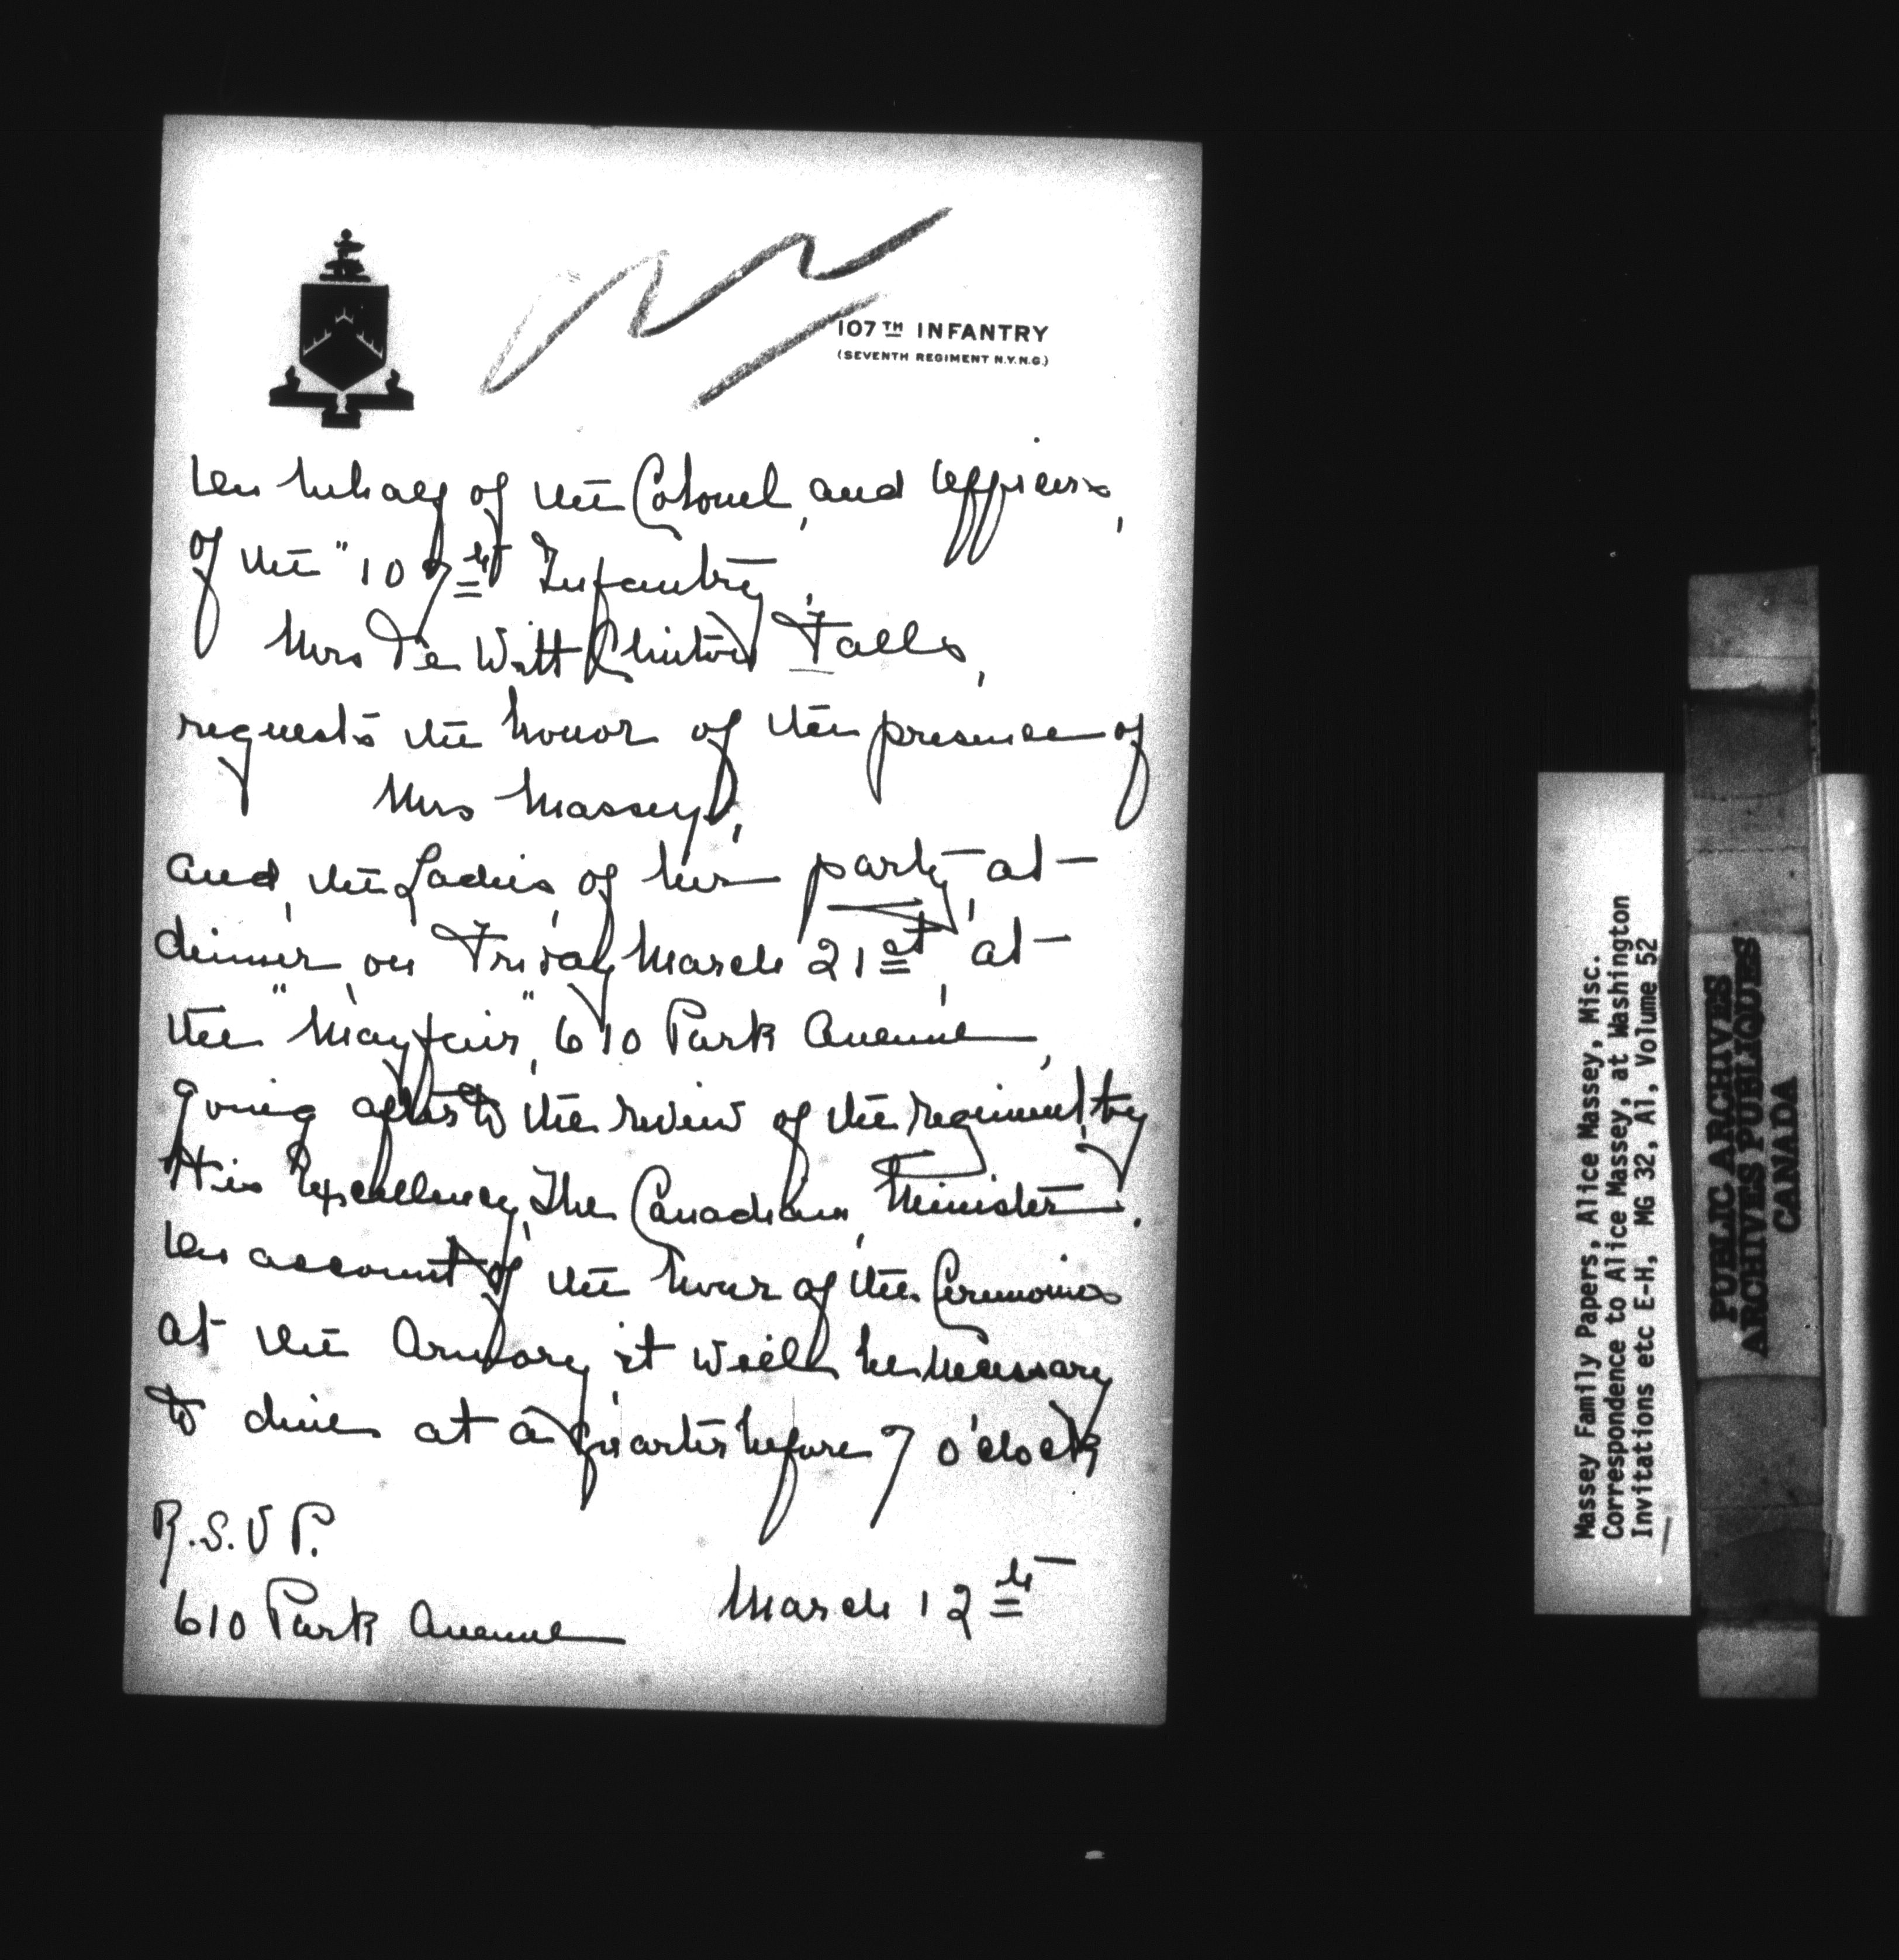 107TH INFANTRY
(SEVENTH REGIMENT N.Y.N.G.)
On behalf of the Colonel, and Officers,
of the "107th Infantry,
Mrs De Witt Clinton Falls,
requests the honor of the presence of
Mrs Massey,
and, the Ladies, of her party, at
dinner, on Friday, March 21st, at
the "Mayfair", 610 Park Avenue,
going after to the review of the regiment, by
His Excellency, The Canadian, Minister.
On account of the hour of the Ceremonies
at the Armory it will be necessary
to dine at a quarter before 7 o'clock
R.S.V.P.
610 Park Avenue
March 12th
Massey Family Papers, Alice Massey, Misc.
Correspondence to Alice Massey, at Washington
Invitations etc E-H, MG 32, A1, Volume 52
PUBLIC ARCHIVES
ARCHIVES PUBLIQUES
CANADA